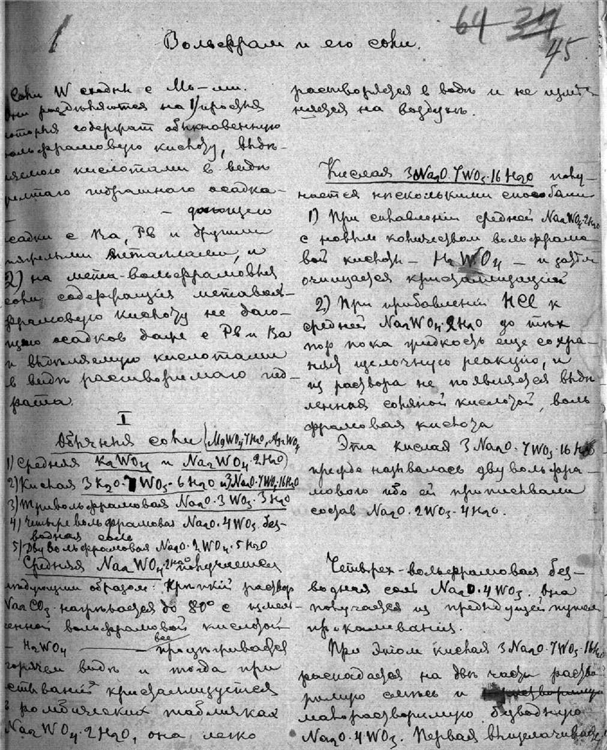 1
64 37
45
Вольфрам и его соли.
Соли W сходны с Mo-ми.
Они разделяются на 1) простыя
которыя содержат обыкновенную
вольфрамовую кислоту, выде-
ляемую кислотами в виде
желтаго гидратнаго осадка
дающаго
осадки с Ba, Pb и другими
тяжелыми металлами, и
2) на мета-вольфрамовыя
соли, содержащия метаволь-
фрамовую кислоту не даю-
щую осадков даже с Pb и Ba
и выделяемую кислотами
в виде растворимаго гид-
рата.
I
Обычныя соли (MgWO4 7H2O, Ag2WO4
1) Средняя K2WO4 и Na2WO4·2H2O)
2) Кислая 3K2O·7WO3·6H2O и 3Na2O·7WO3·16H2O
3) Тривольфрамовая Na2O·3WO3·3H2O
4) Четыре вольфрамовая Na2O·4WO3 без-
водная соль
5) Двувольфрамовая Na2O·2WO3·5H2O
Средняя Na2WO4 2H2O получается
следующим образом: Крепкий раствор
Na2CO3 нагревается до 80° с измель-
ченной вольфрамовой кислотой
– H2WO4 – все процеживается
горячем виде и тогда при
стывании кристализуется
в ромбических табличках
Na2WO4·2H2O, она легко
растворяется в воде и не изме-
няется на воздухе.
Кислая 3Na2O·7WO3·16H2O полу-
чается несколькими способами
1) При сплавлении средней Na2WO4·2H2O
с новым количеством вольфрамо-
вой кислоты – H2WO4 – и затем
очищается кристаллизацией
2) При прибавлении HCl к
средней Na2WO4·2H2O до тех
пор пока жидкость еще сохра-
няя щелочную реакцию, и
из раствора не появляется выде-
ленная соляной кислотой, воль
фрамовая кислота
Эта кислая 3Na2O·7WO3·16H2O
прежде называлась двувольфра-
мового ибо ей приписывали
состав Na2O·2WO3·4H2O.
Четырех-вольфрамовая без-
водная соль Na2O·4WO3. Она
получается из предыдущей путем
прокаливания.
При этом кислая 3Na2O·7WO3·16H2O
распадается на две части раство-
римую смесь и
малорастворимую безводную
Na2O·4WO3. Первая выщелачивается